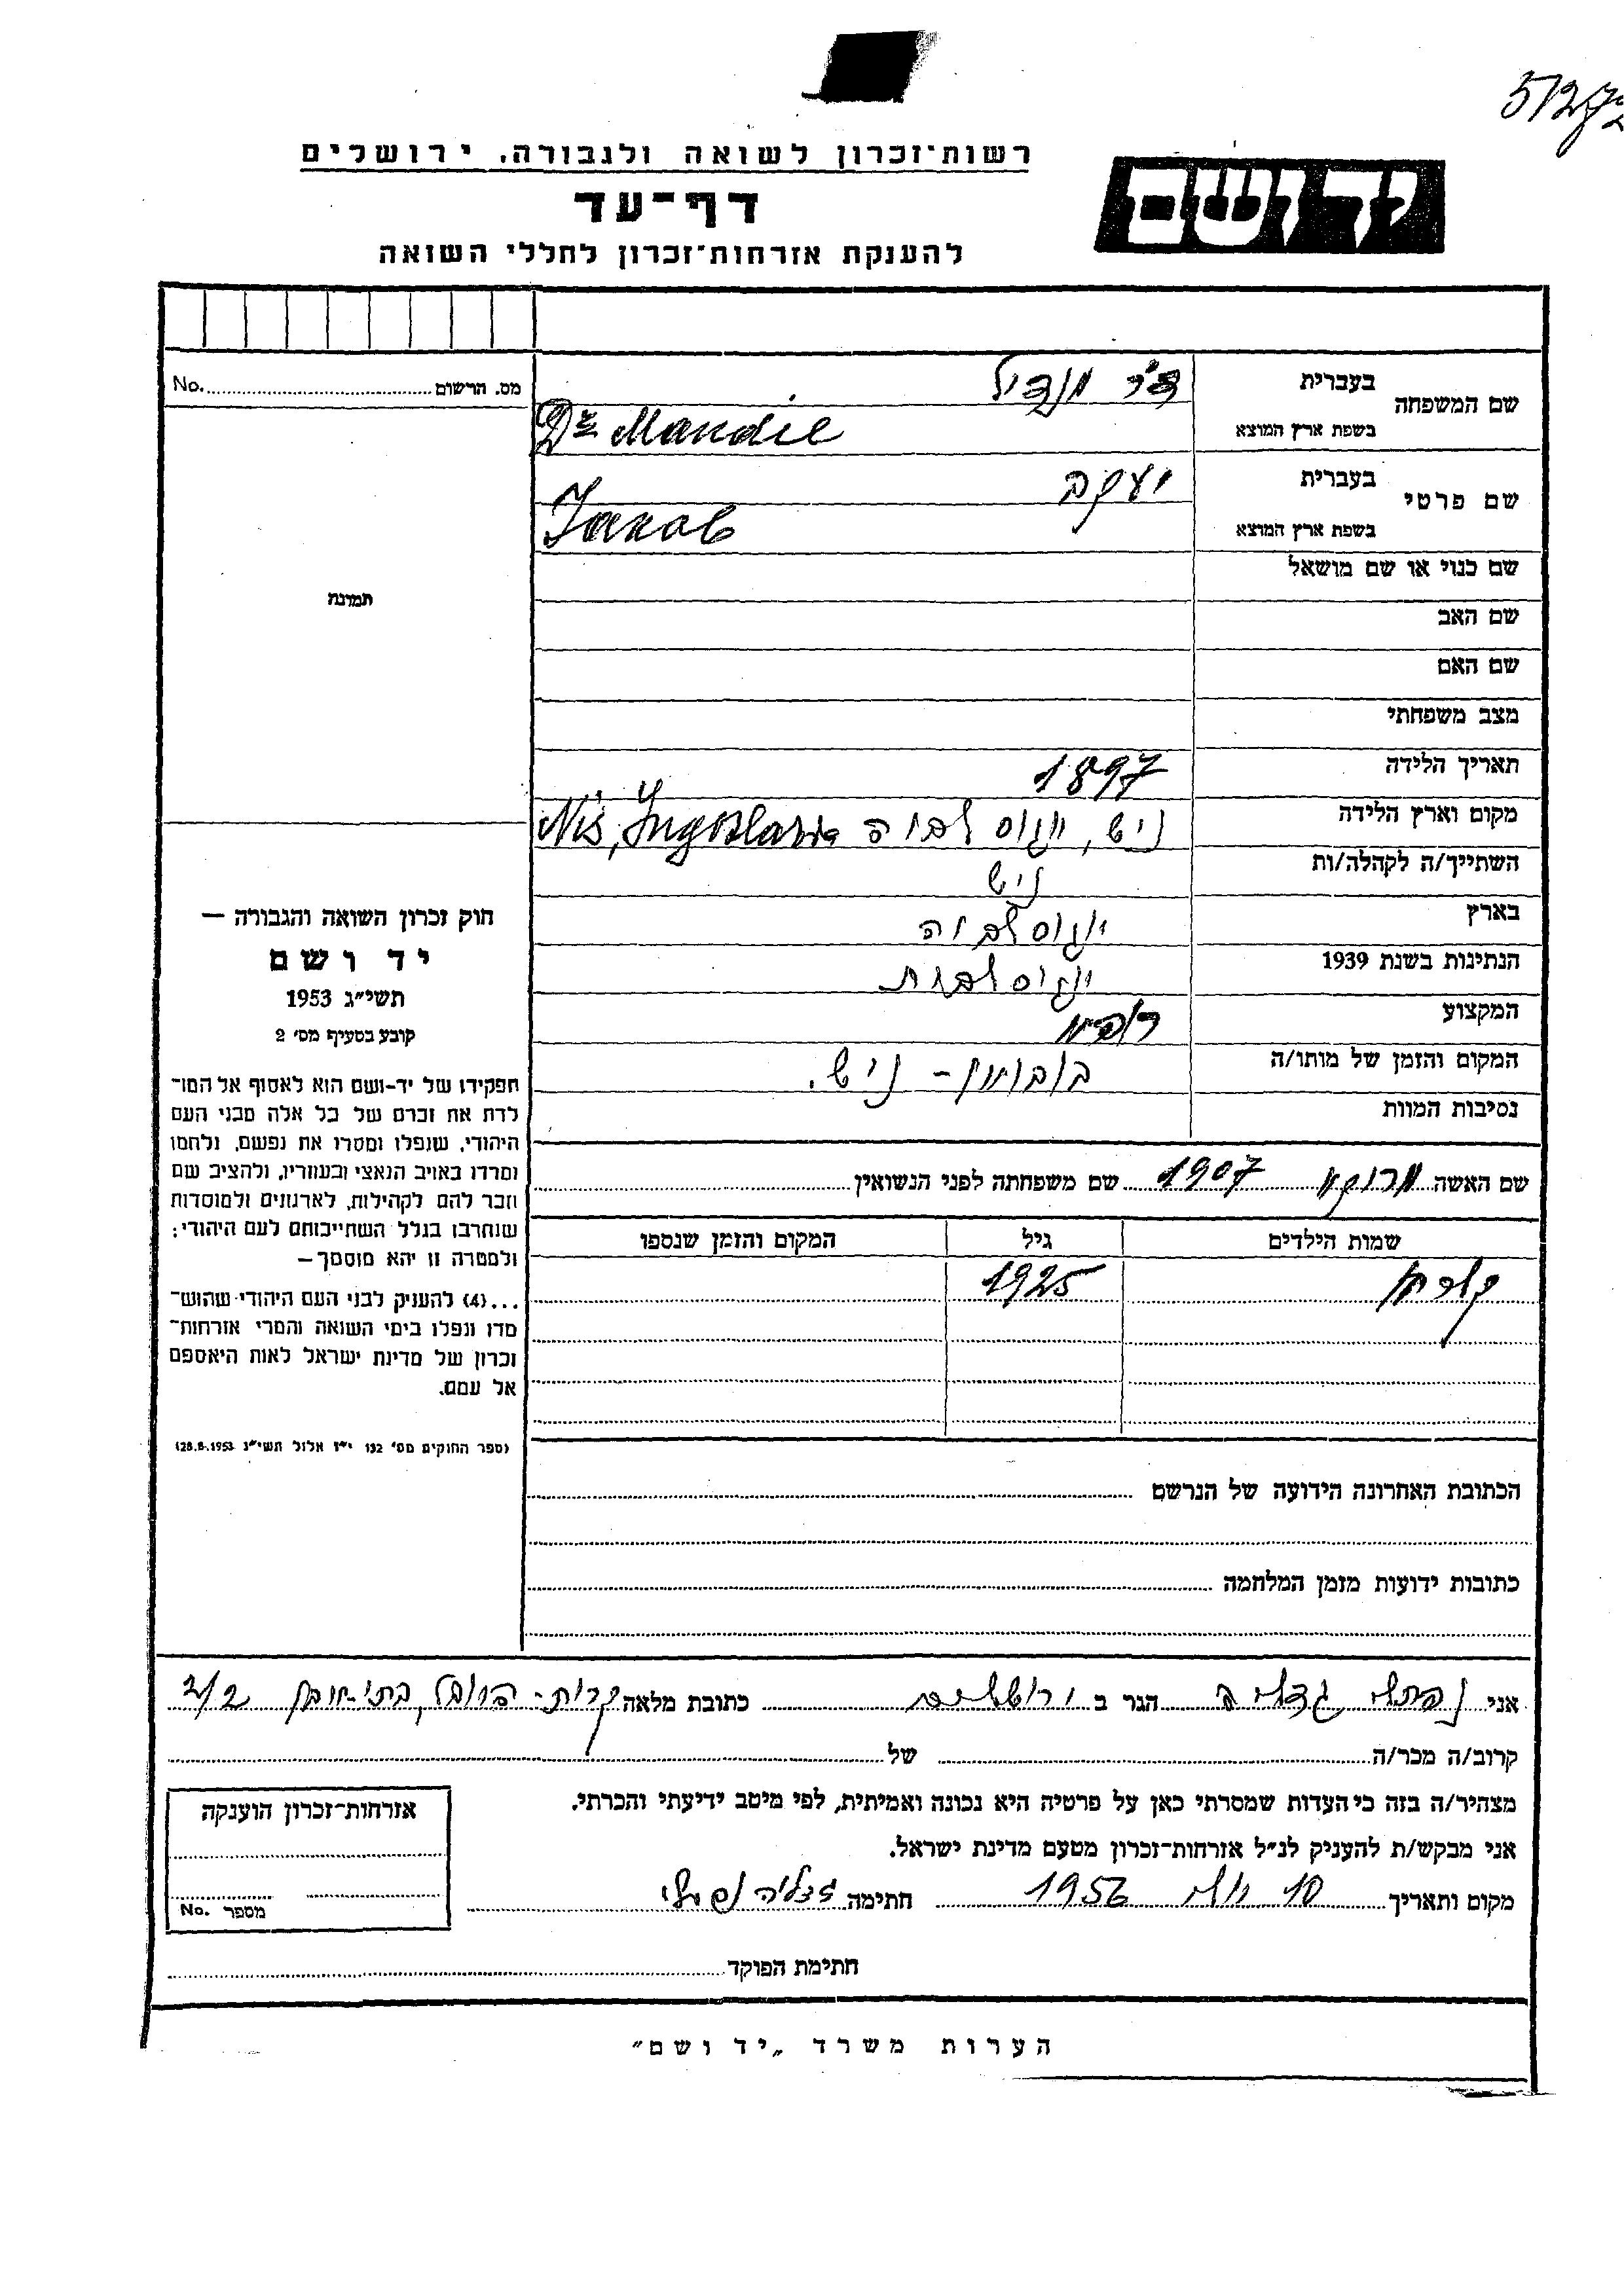 51272
רשות־זכרון לשואה ולגבורה, ירושלים
יד ושם
דף־עד
להענקת אזרחות־זכרון לחללי השואה
מס. הרשום No.
תמונה
חוק זכרון השואה והגבורה —
יד ושם
תשי״ג 1953
קובע בסעיף מס׳ 2
תפקידו של יד-ושם הוא לאסוף אל המו־
לדת את זכרם של כל אלה מבני העם
היהודי, שנפלו ומסרו את נפשם, נלחמו
ומרדו באויב הנאצי ובעוזריו, ולהציב שם
וזכר להם לקהילות, לארגונים ולמוסדות
שנחרבו בגלל השתייכותם לעם היהודי;
ולמטרה זו יהא מוסמך —
...(4) להעניק לבני העם היהודי שהוש־
מדו ונפלו בימי השואה והמרי אזרחות־
זכרון של מדינת ישראל לאות היאספם
אל עמם.
(ספר החוקים מס׳ 132 י״ז אלול תשי״ג 28.8.1953)
שם המשפחה בעברית ד״ר מנדיל
בשפת ארץ המוצא Dr Mandil
שם פרטי בעברית יעקב
בשפת ארץ המוצא Jakob
שם כנוי או שם מושאל
שם האב
שם האם
מצב משפחתי
תאריך הלידה 1897
מקום וארץ הלידה ניש, יוגוסלביה Niš, Jugoslavia
השתייך/ה לקהלה/ות ניש
בארץ יוגוסלביה
הנתינות בשנת 1939 יוגוסלבית
המקצוע רופא
המקום והזמן של מותו/ה בובואן - ניש.
נסיבות המוות
שם האשה 1907 שם משפחתה לפני הנשואין
שמות הילדים גיל המקום והזמן שנספו
1925
הכתובת האחרונה הידועה של הנרשם
כתובות ידועות מזמן המלחמה
אני נפתלי גדליה הגר ב ירושלים כתובת מלאה קרית-היובל, 2/2
קרוב/ה מכר/ה של
מצהיר/ה בזה כי העדות שמסרתי כאן על פרטיה היא נכונה ואמיתית, לפי מיטב ידיעתי והכרתי.
אני מבקש/ת להעניק לנ״ל אזרחות־זכרון מטעם מדינת ישראל.
מקום ותאריך 10 יולי 1956 חתימה גדליה נפתלי
אזרחות־זכרון הוענקה
מספר No.
חתימת הפוקד
הערות משרד „יד ושם״